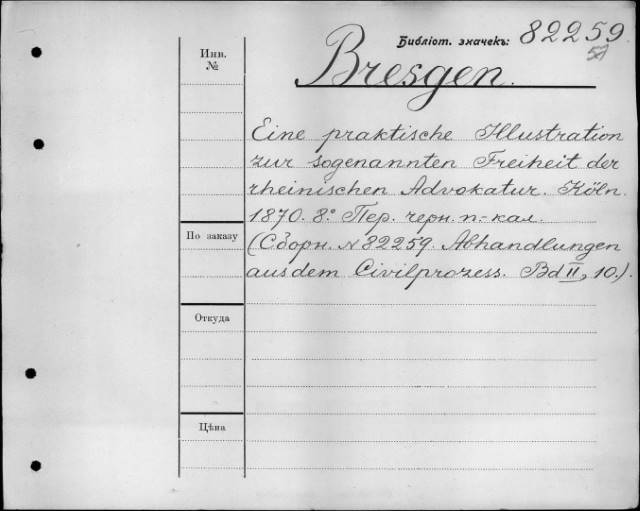 Библіот. значекъ: 82259.
Инв.
№
Bresgen.
Eine praktische Illustration
zur sogenannten Freiheit der
rheinischen Advokatur. Köln.
1870. 8.° Пер. черн. п.-кал.
По заказу
(Сборн. № 82259. Abhandlungen
aus dem Civilprozess. Bd II, 10.).
Откуда
Цѣна